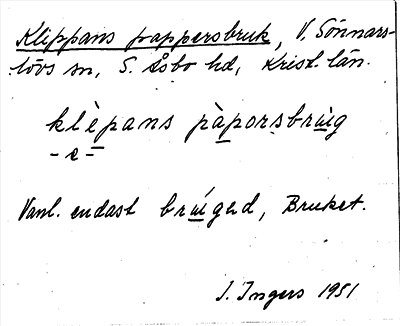 Klippans pappersbruk, V. Sönnars-
lövs sn, S. Åsbo hd, Krist. län.
klèpans pàporsbrųig
- e -
Vanl. endast brųígəd, Bruket.
I. Ingers 1951